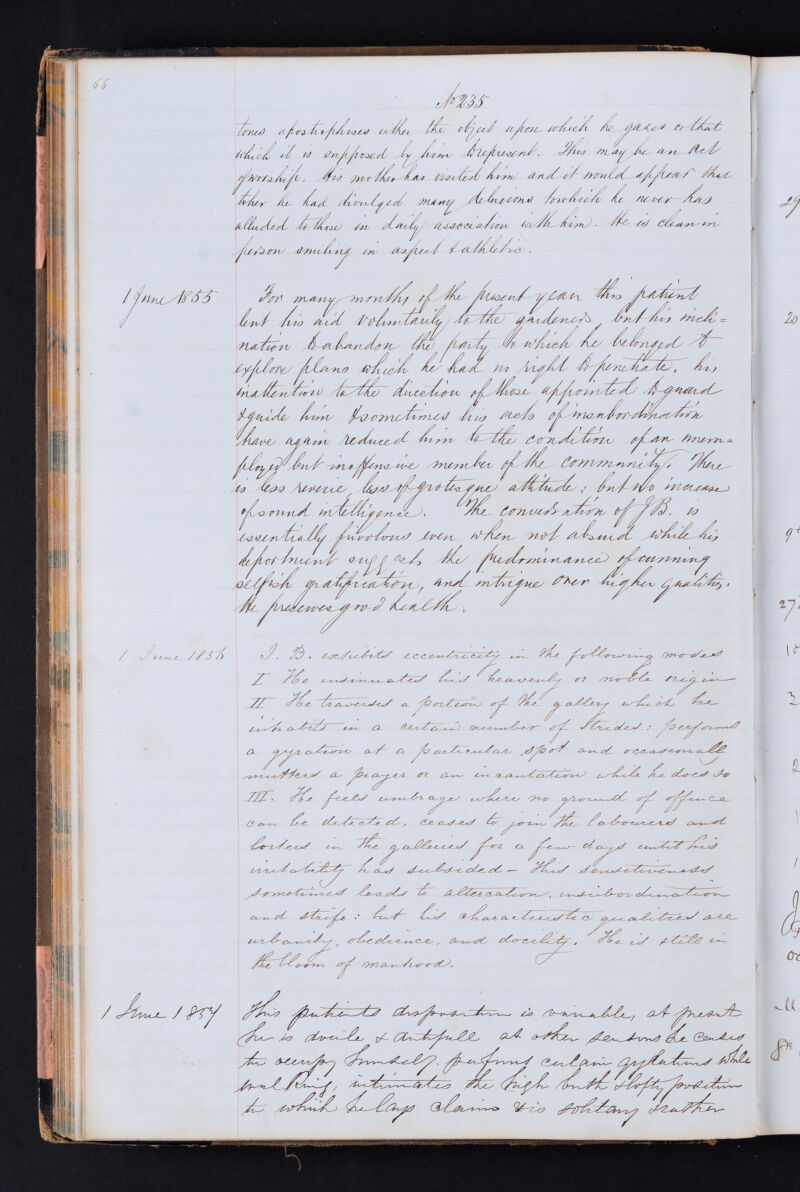 66
No 235
tones apostrophises either the object upon which he gazes or that
which it is supposed by him to represent. This may be an act
of worship. His mother has visited him and it would appear that
to her he had divulged many delusions to which he never has
alluded to those in daily association with him. He is clean in
person smiling in aspect & athletic.
1 June 1855 For many months of the present year this patient
lent his aid voluntarily to the gardeners but his incli=
nation to abandon the party to which he belonged to
explore plans which he had no right to penetrate, his
inattention to the direction of those appointed to guard
& guide him & sometimes his acts of insubordination
have again reduced him to the condition of an unem=
ployed but inoffensive member of the community. There
is less reverie, less of grotesque attitude: but no increase
of sound intelligence. The conversation of J B. is
essentially frivolous even when not absurd while his
deportment suggests the predominance of cunning
selfish gratification, and intrigue over higher qualities.
He preserves good health.
1 June 1856 J. B. exhibits eccentricity in the following modes
I He insinuates his heavenly or noble origin
II He traverses a portion of the gallery which he
inhabits in a certain number of strides: performs
a gyration at a particular spot and occasionally
mutters a prayer or an incantation while he does so
III. He feels umbrage where no ground of offence
can be detected, ceases to join the labourers and
loiters in the galleries for a few days until his
irritability has subsided - This sensitiveness
sometimes leads to altercation, insubordination
and strife: but his characteristic qualities are
urbanity, obedience, and docility. He is still in
the bloom of manhood.
1 June 1857 This patients disposition is variable, at present
he is docile & dutifull at other seasons he ceases
to occupy himself, performs certain gyrations while
walking, intimates the high birth & lofty position
to which he lays claim & is solitary & rather
29
20
27
10
8th